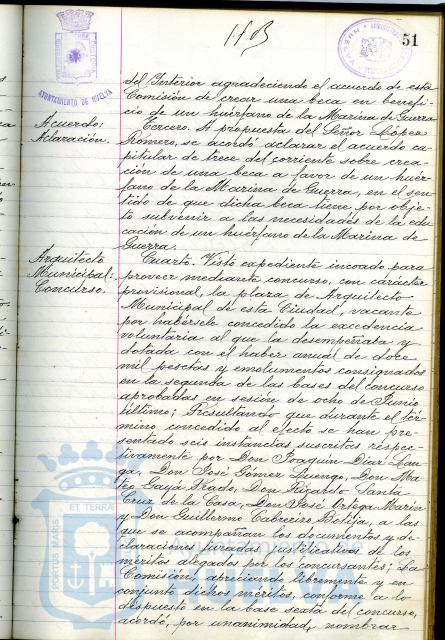 1103
51
AYUNTAMIENTO DE HUELVA
del Interior agradeciendo el acuerdo de esta
Comisión de crear una beca en benefi-
cio de un huérfano de la Marina de Guerra
Acuerdo:
Aclaración.
Tercero. A propuesta del Señor López
Romero, se acordó aclarar el acuerdo ca-
pitular de trece del corriente sobre crea-
ción de una beca a favor de un huér-
fano de la Marina de Guerra, en el sen-
tido de que dicha beca tiene por obje-
to subvenir a las necesidades de la edu-
cación de un huérfano de la Marina de
Guerra.
Arquitecto
Municipal:
Concurso.
Cuarto. Visto expediente incoado para
proveer mediante concurso, con carácter
provisional, la plaza de Arquitecto
Municipal de esta Ciudad, vacante
por habérsele concedido la excedencia
voluntaria al que la desempeñaba y
dotada con el haber anual de doce
mil pesetas y emolumentos consignados
en la segunda de las bases del concurso
aprobadas en sesión de ocho de Junio
último; Resultando que durante el tér-
mino concedido al efecto se han pre-
sentado seis instancias suscritas respec-
tivamente por Don Joaquín Díaz Lan-
ga, Don José Gómez Luengo, Don Ma-
teo Gayá Prado, Don Ricardo Santa-
Cruz de la Casa, Don José Ortega Marín
y Don Guillermo Cabrerizo Botija, a las
que se acompañan los documentos y de-
claraciones juradas justificativos de los
méritos alegados por los concursantes; La
Comisión, apreciando libremente y en
conjunto dichos méritos, conforme a lo
dispuesto en la base sexta del concurso,
acordó, por unanimidad, nombrar
PORTUS MARIS ET TERRAE